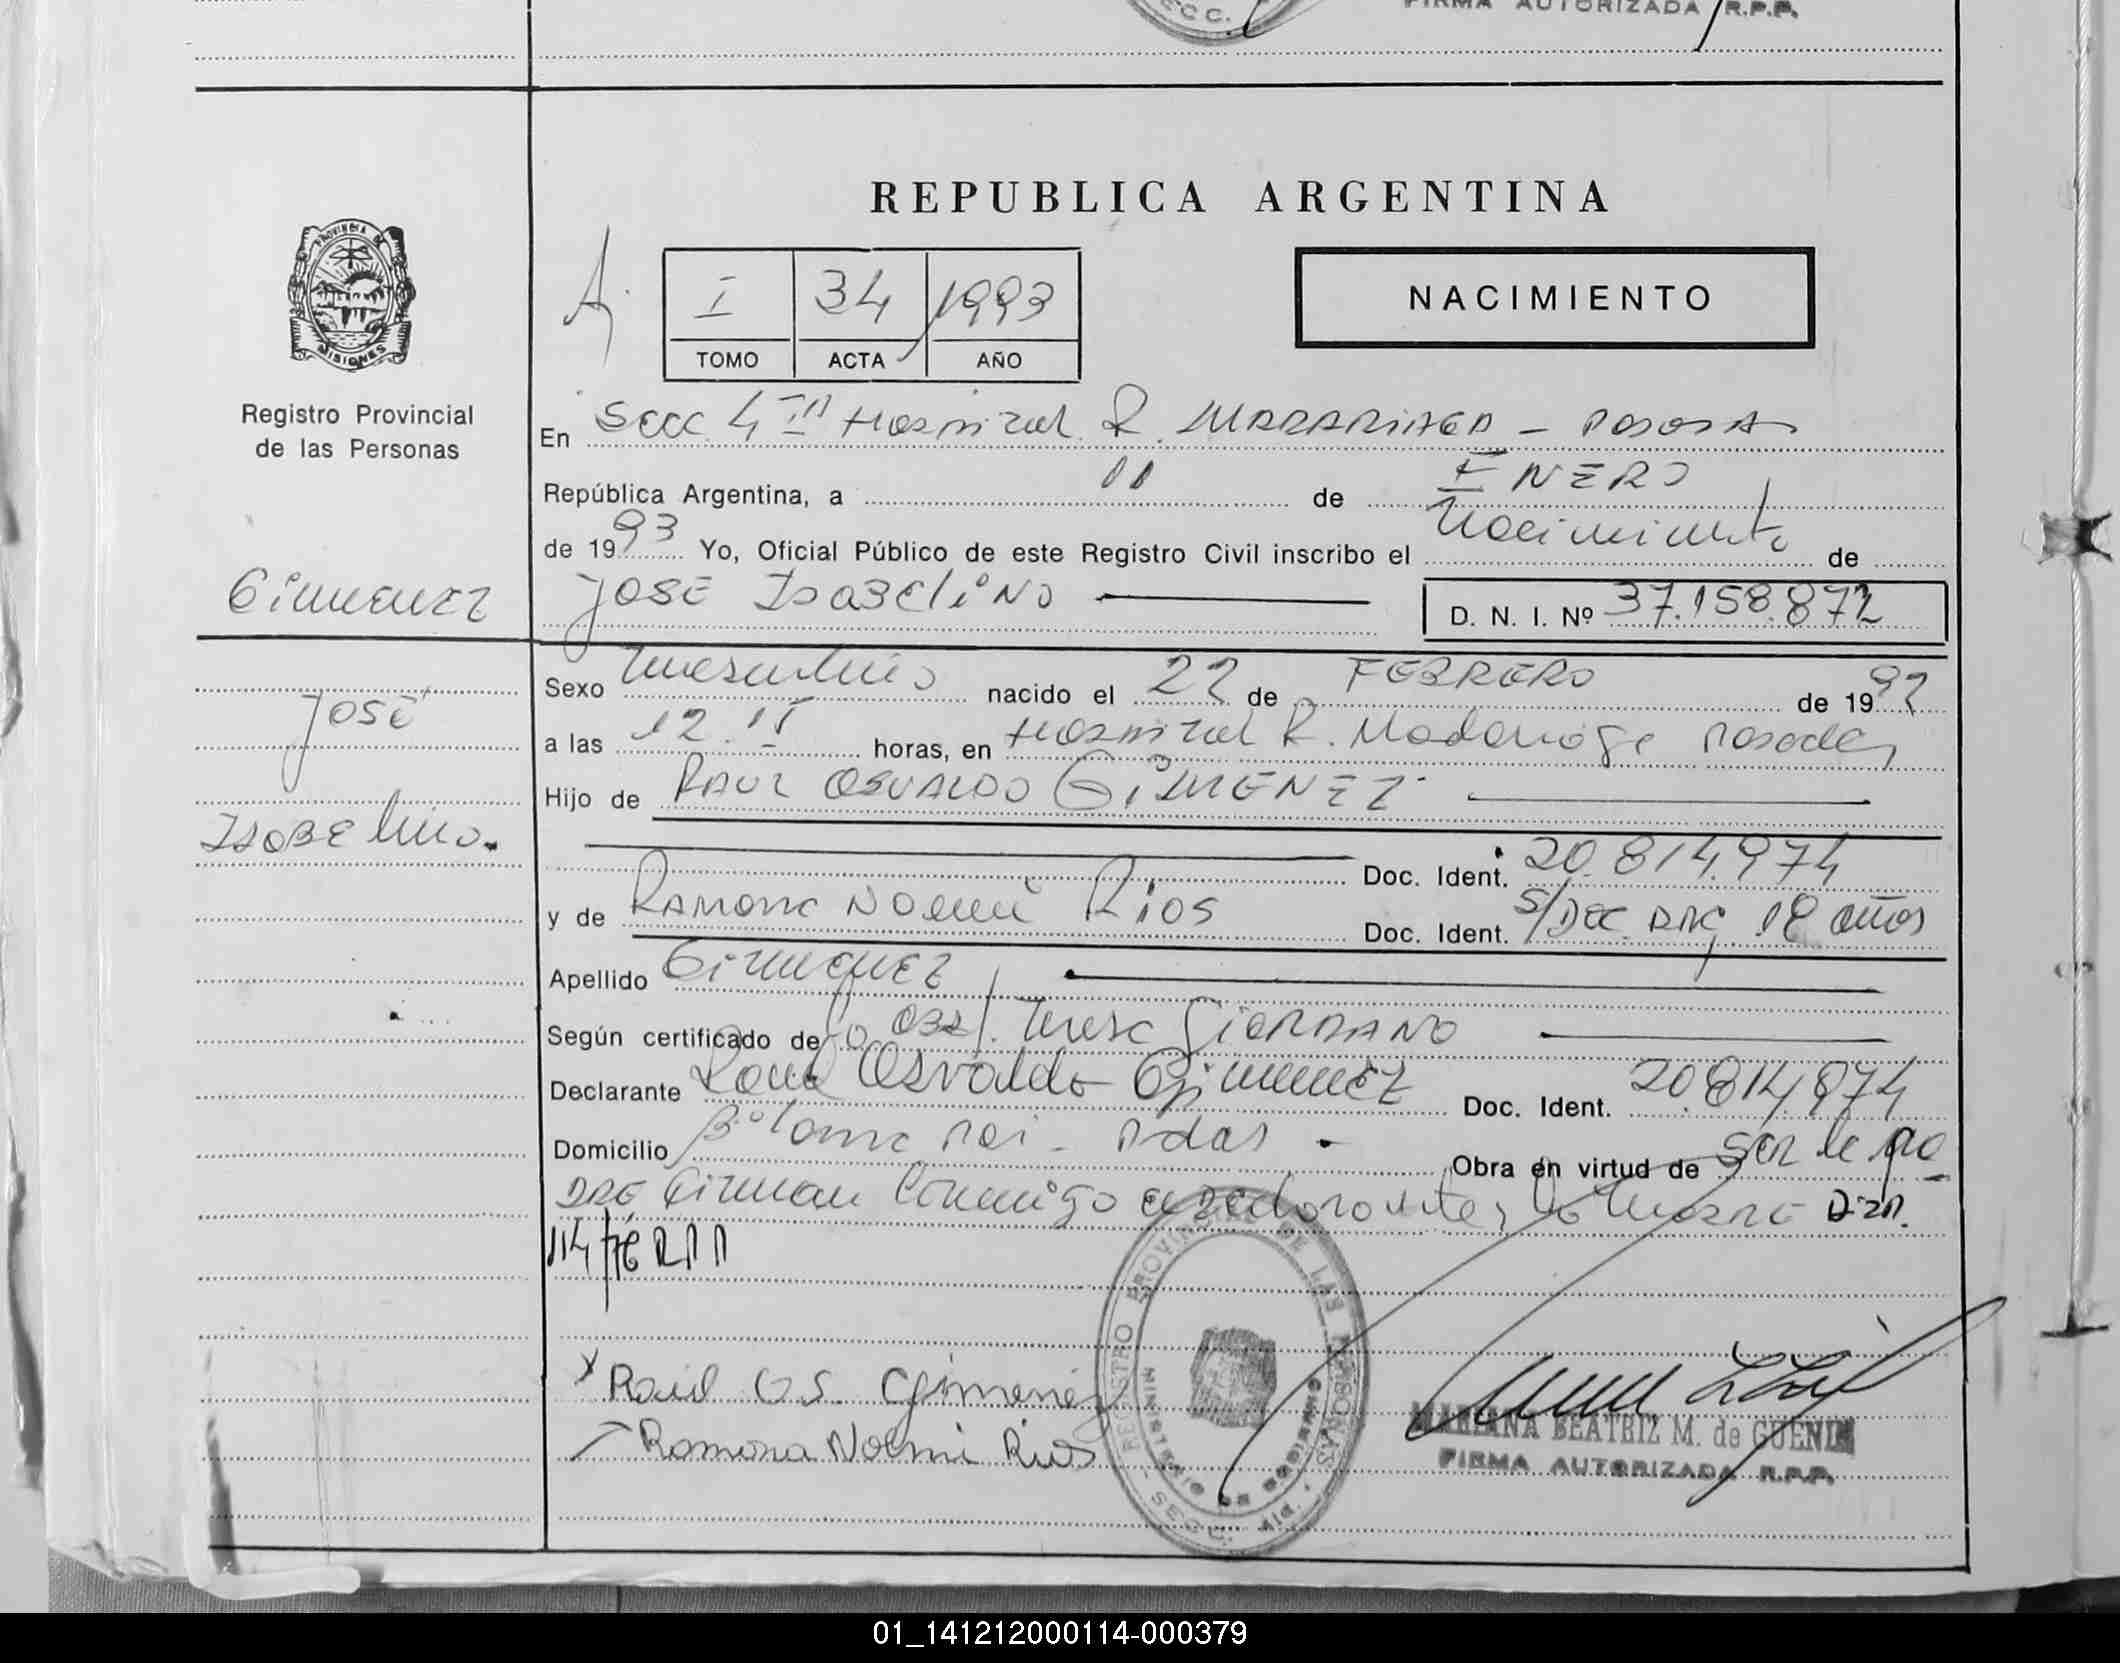 FIRMA AUTORIZADA R.P.P.
REPUBLICA ARGENTINA
PROVINCIA DE
MISIONES
Registro Provincial
de las Personas
I 34 1993
TOMO ACTA AÑO
NACIMIENTO
En Secc 4 Hospital R. MADARIAGA - POSADAS
República Argentina, a 11 de ENERO
de 1993 Yo, Oficial Público de este Registro Civil inscribo el Nacimiento de
Gimenez
JOSE ISABELINO
D. N. I. Nº 37.158.872
José
Isabelino.
Sexo masculino nacido el 22 de FEBRERO de 1992
a las 12. horas, en Hospital R. Madariaga Posadas
Hijo de RAUL OSVALDO GIMENEZ
Doc. Ident. 20.814.974
y de Ramona Noemi Rios Doc. Ident. S/Doc. 18 años
Apellido Gimenez
Según certificado de Obst. Teresa GIORDANO
Declarante Raul Osvaldo Gimenez Doc. Ident. 20.814.974
Domicilio Obra en virtud de Ser le pa
dre Firman Conmigo el declarante y la madre
Raúl OS. Gimenez
Ramona Noemi Rios
REGISTRO PROVINCIAL DE LAS PERSONAS
MINISTERIO DE GOBIERNO
MARIANA BEATRIZ M. de GUENIN
FIRMA AUTORIZADA R.P.P.
01_141212000114-000379